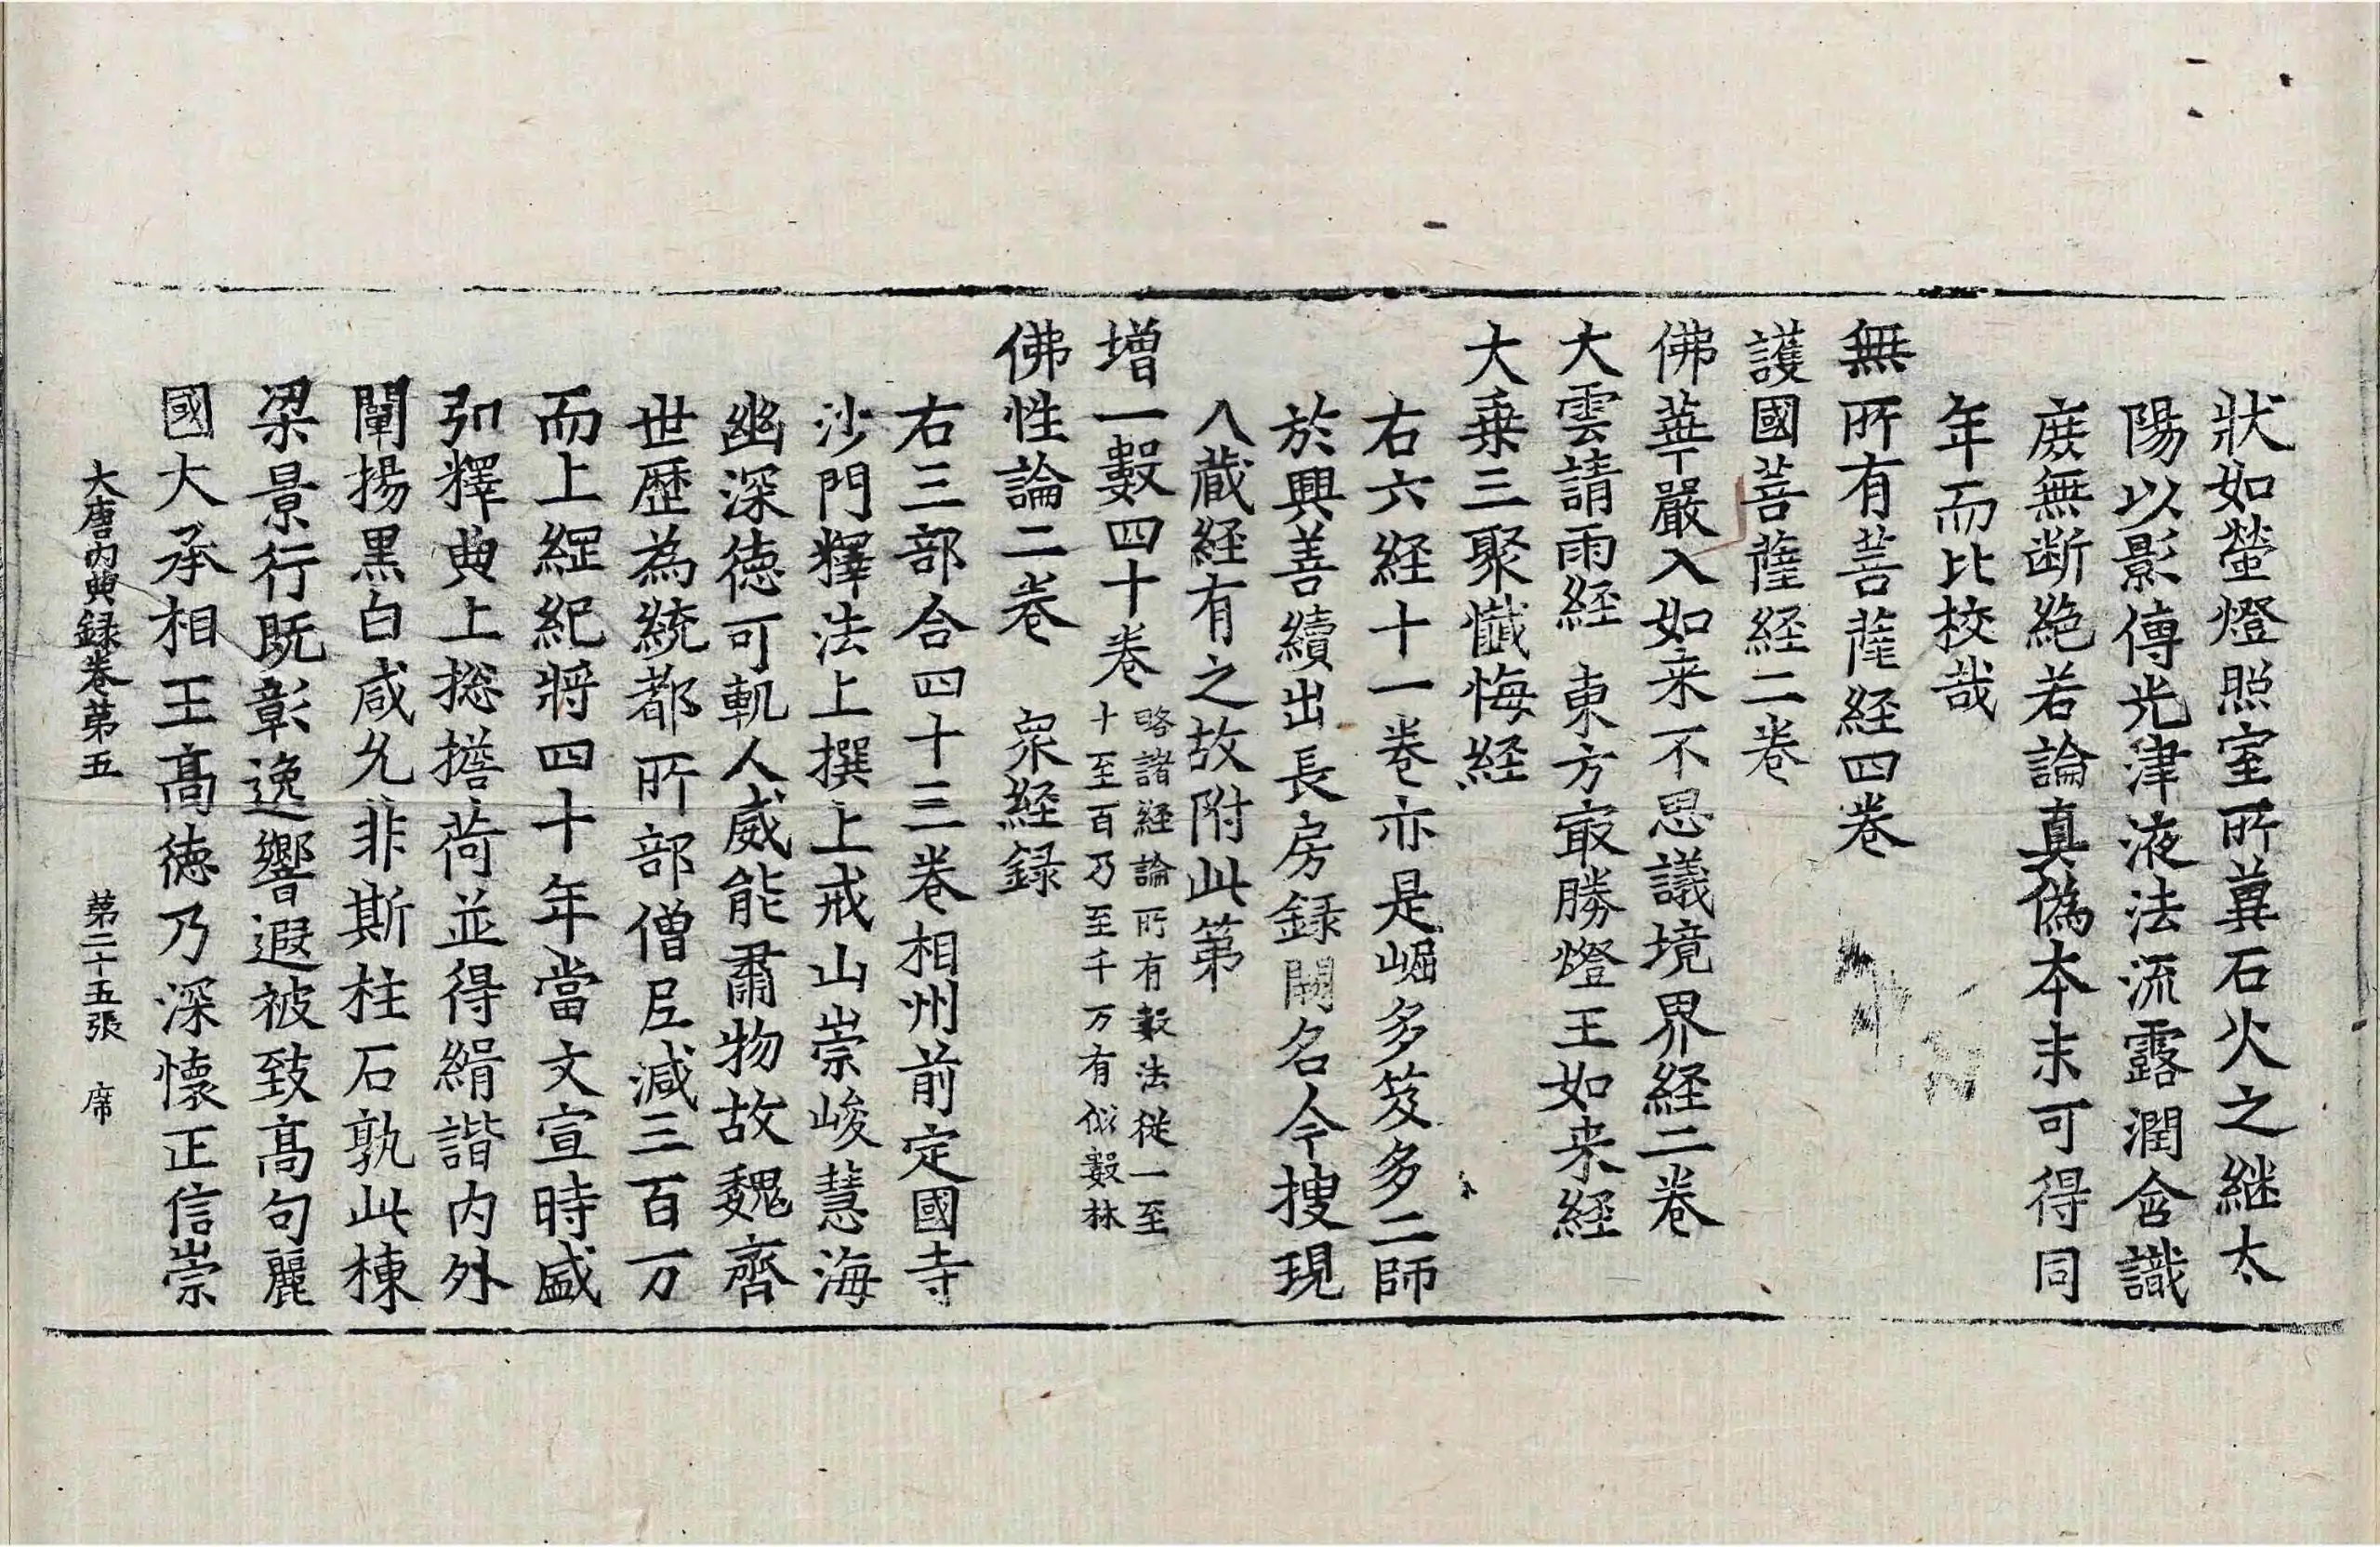 狀如螢燈照室所冀石火之継太
陽以影傳光津液法流露潤含識
庶無断絶若論真偽本末可得同
年而比校㢤
無所有菩薩経四卷
護國菩薩経二卷
佛華嚴入如来不思議境界経二卷
大雲請雨経 東方㝡勝燈王如来経
大乗三聚懺悔経
右六経十一卷亦是崛多笈多二師
於興善續出長房録闕名今搜現
入蔵経有之故附此第
增一數四十卷 略諸経論所有數法従一至
十至百乃至千万有似數林
佛性論二卷 衆経録
右三部合四十三卷相州前定國寺
沙門釋法上撰上戒山崇峻慧海
幽深徳可軌人威能肅物故魏齊
世歴為統都所部僧尼減三百万
而上綱紀將四十年當文宣時盛
弘釋典上捴擔荷並得緝諧内外
闡揚黒白咸允非斯柱石孰此棟
梁景行既彰逸響遐被致髙句麗
國大承相王髙徳乃深懐正信崇
大唐内典録卷第五 第二十五張 席